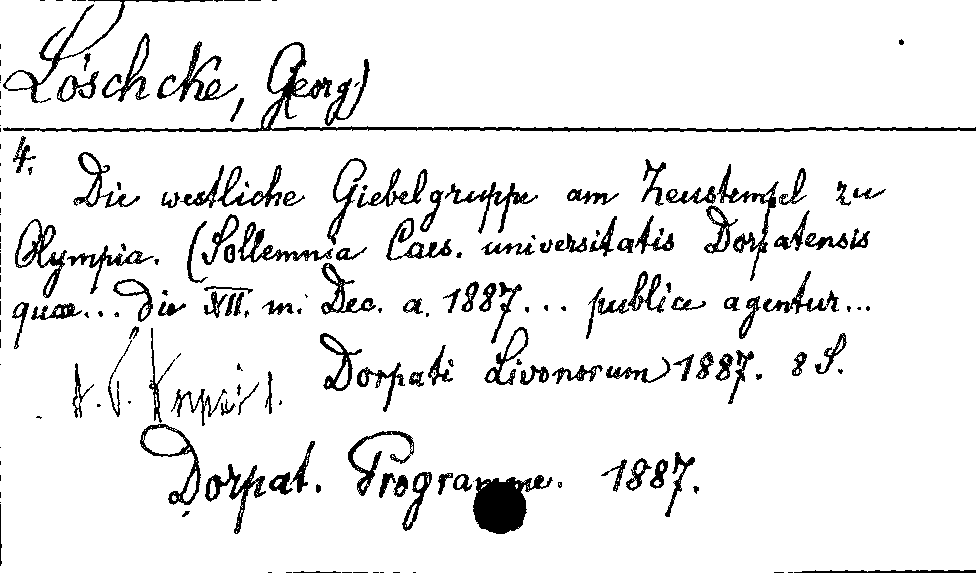 Löschcke, Georg)
4.
Die westliche Giebelgruppe am Zeustempel zu
Olympia. (Sollemnia Caes. universitatis Dorpatensis
quae... die XII. m. Dec. a. 1887... publice agentur...
Dorpati Livonorum 1887. 8 S.
Dorpat. Programme. 1887.